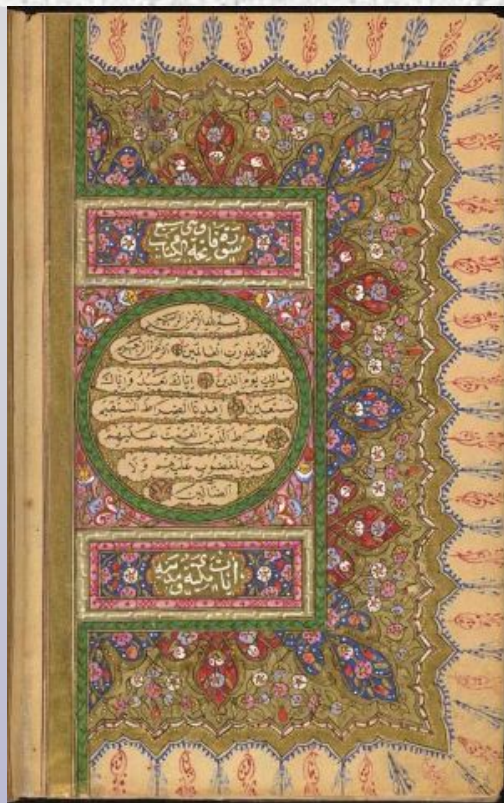 سورة فاتحة الكتاب وهي سبع
بسم الله الرحمن الرحيم
الحمد لله رب العالمين الرحمن الرحيم
مالك يوم الدين إياك نعبد وإياك
نستعين إهدنا الصراط المستقيم
صراط الذين أنعمت عليهم
غير المغضوب عليهم ولا
الضالين
آيات مكية ومدنية